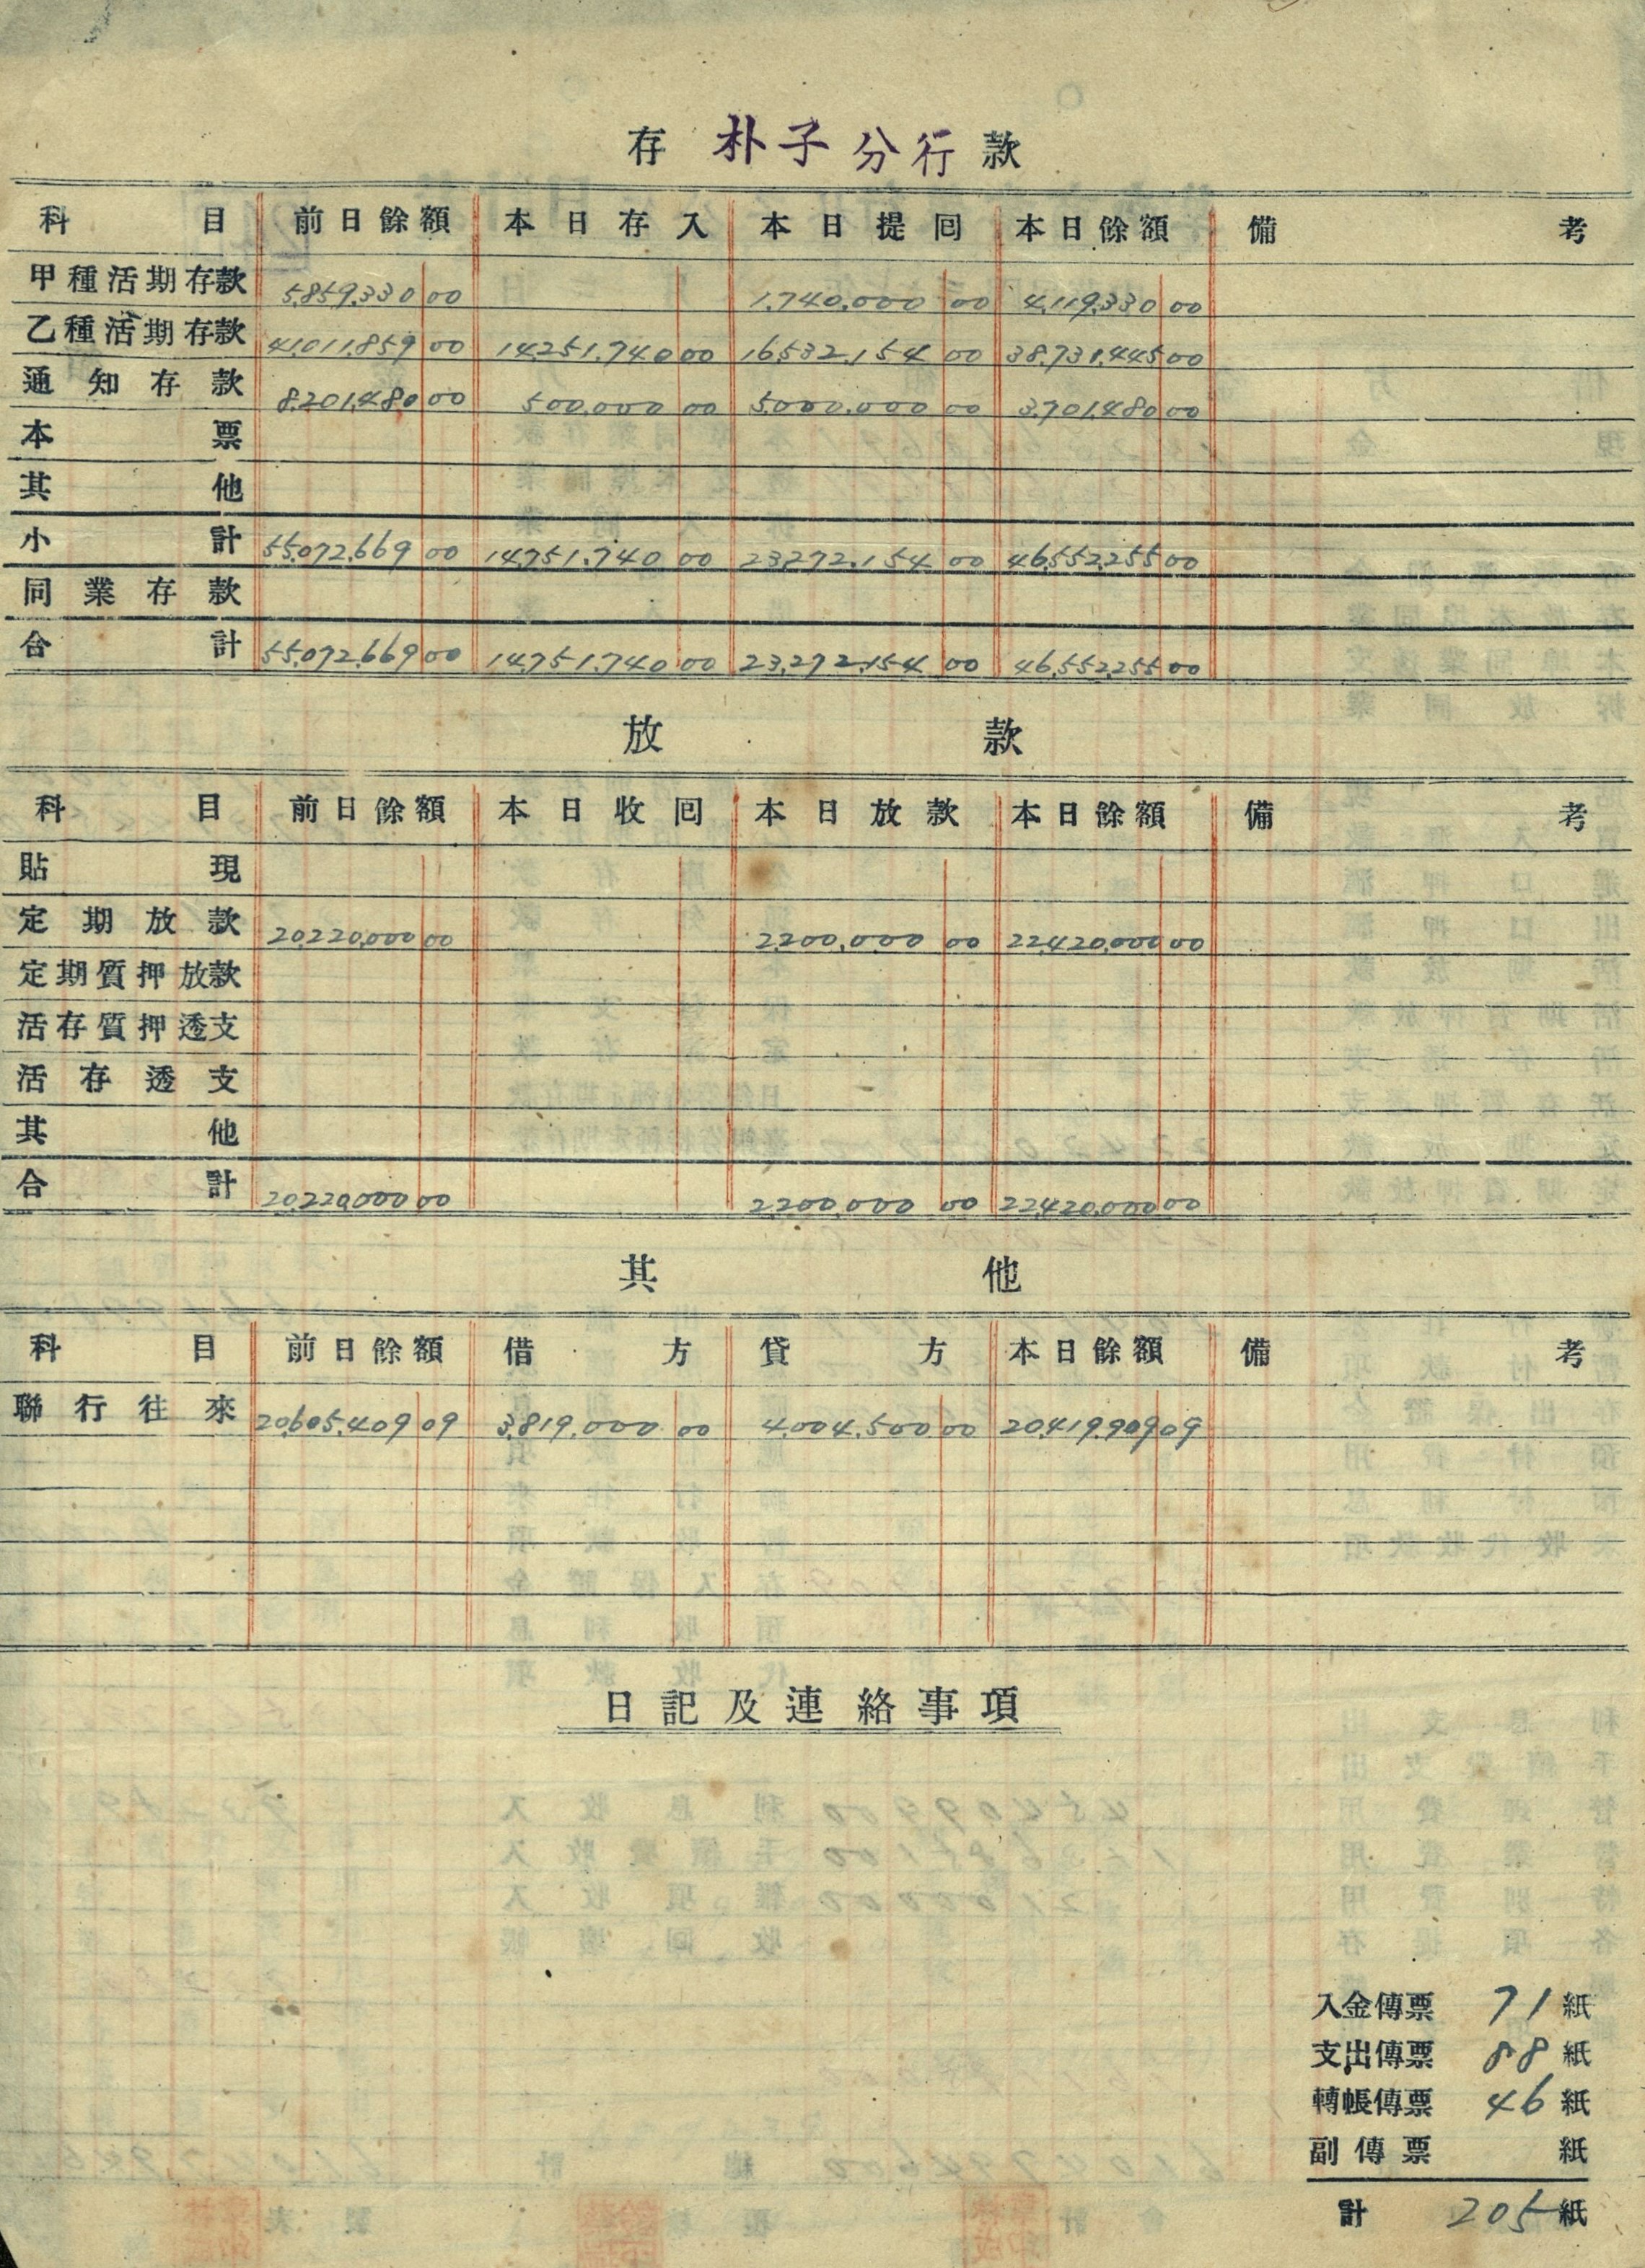 存 朴子分行 款
科目 前日餘額 本日存入 本日提囘 本日餘額 備考
甲種活期存款 5,859,330 00 1,740,000 00 4,119,330 00
乙種活期存款 41,011,859 00 14,251,740 00 16,532,154 00 38,731,445 00
通知存款 8,201,480 00 500,000 00 5,000,000 00 3,701,480 00
本票
其他
小計 55,072,669 00 14,751,740 00 23,272,154 00 46,552,255 00
同業存款
合計 55,072,669 00 14,751,740 00 23,272,154 00 46,552,255 00
放款
科目 前日餘額 本日收囘 本日放款 本日餘額 備考
貼現
定期放款 20,220,000 00 2,200,000 00 22,420,000 00
定期質押放款
活存質押透支
活存透支
其他
合計 20,220,000 00 2,200,000 00 22,420,000 00
其他
科目 前日餘額 借方 貸方 本日餘額 備考
聯行往來 20,605,409 09 3,819,000 00 4,004,500 00 20,419,909 09
日記及連絡事項
入金傳票 71 紙
支出傳票 88 紙
轉帳傳票 46 紙
副傳票 紙
計 205 紙